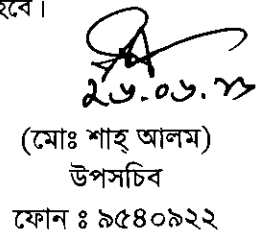 হবে।
২৬.০৬.২৩
(মোঃ শাহ্ আলম)
উপসচিব
ফোন ঃ ৯৫৪০৯২২